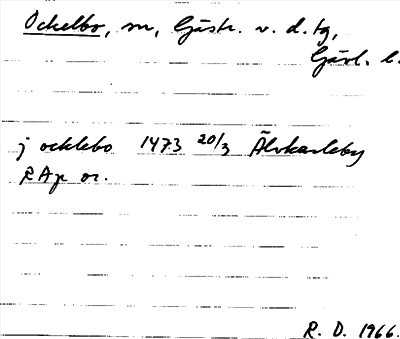 Ockelbo, sn, Gästr. v. d. tg,
Gävl. l.
j ocklebo 1473 20/3 Älvkarleby
RAp or.
R. D. 1966.